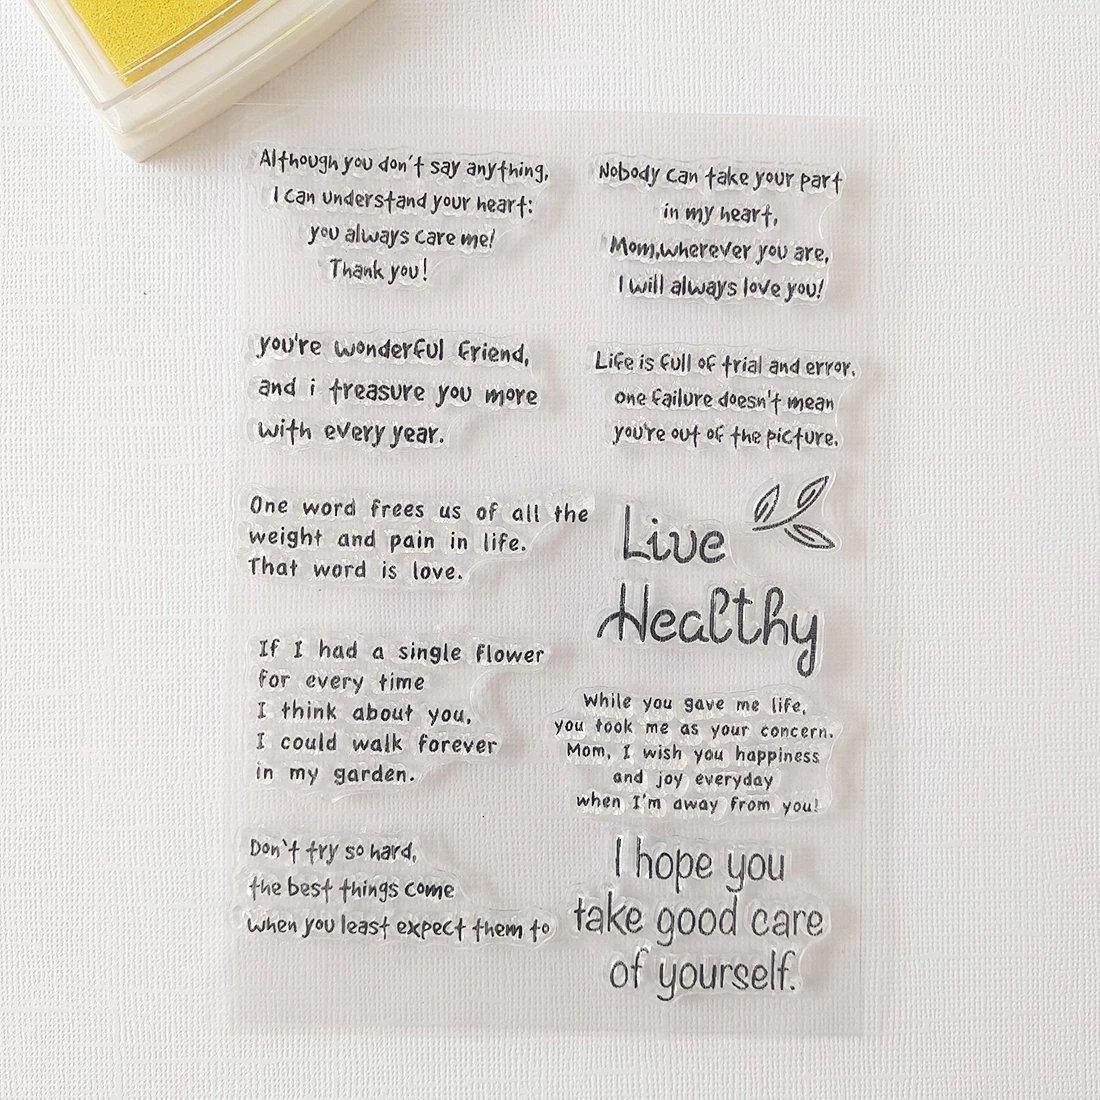 Although you don't say anything,
I can understand your heart:
you always care me!
Thank you!
you're wonderful friend,
and i treasure you more
with every year.
One word frees us of all the
weight and pain in life.
That word is love.
If I had a single flower
for every time
I think about you,
I could walk forever
in my garden.
Don't try so hard,
the best things come
when you least expect them to
Nobody can take your part
in my heart,
Mom,wherever you are,
I will always love you!
Life is full of trial and error.
one failure doesn't mean
you're out of the picture.
Live
Healthy
While you gave me life,
you took me as your concern.
Mom, I wish you happiness
and joy everyday
when I'm away from you!
I hope you
take good care
of yourself.